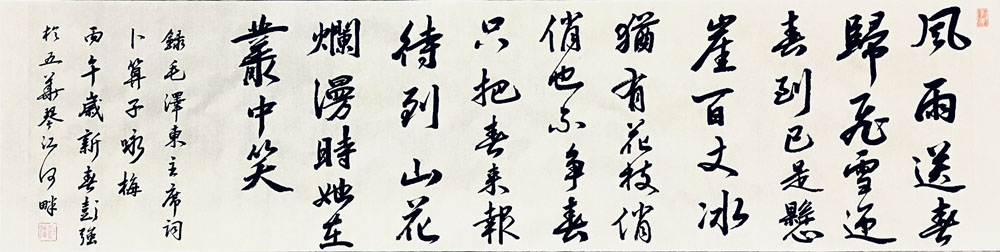 風雨送春
歸飛雪迎
春到已是懸
崖百丈冰
猶有花枝俏
俏也不爭春
只把春来報
待到山花
爛漫時她在
叢中笑
録毛澤東主席詞
卜算子咏梅
丙午歲新春彭強
於五華琴江河畔